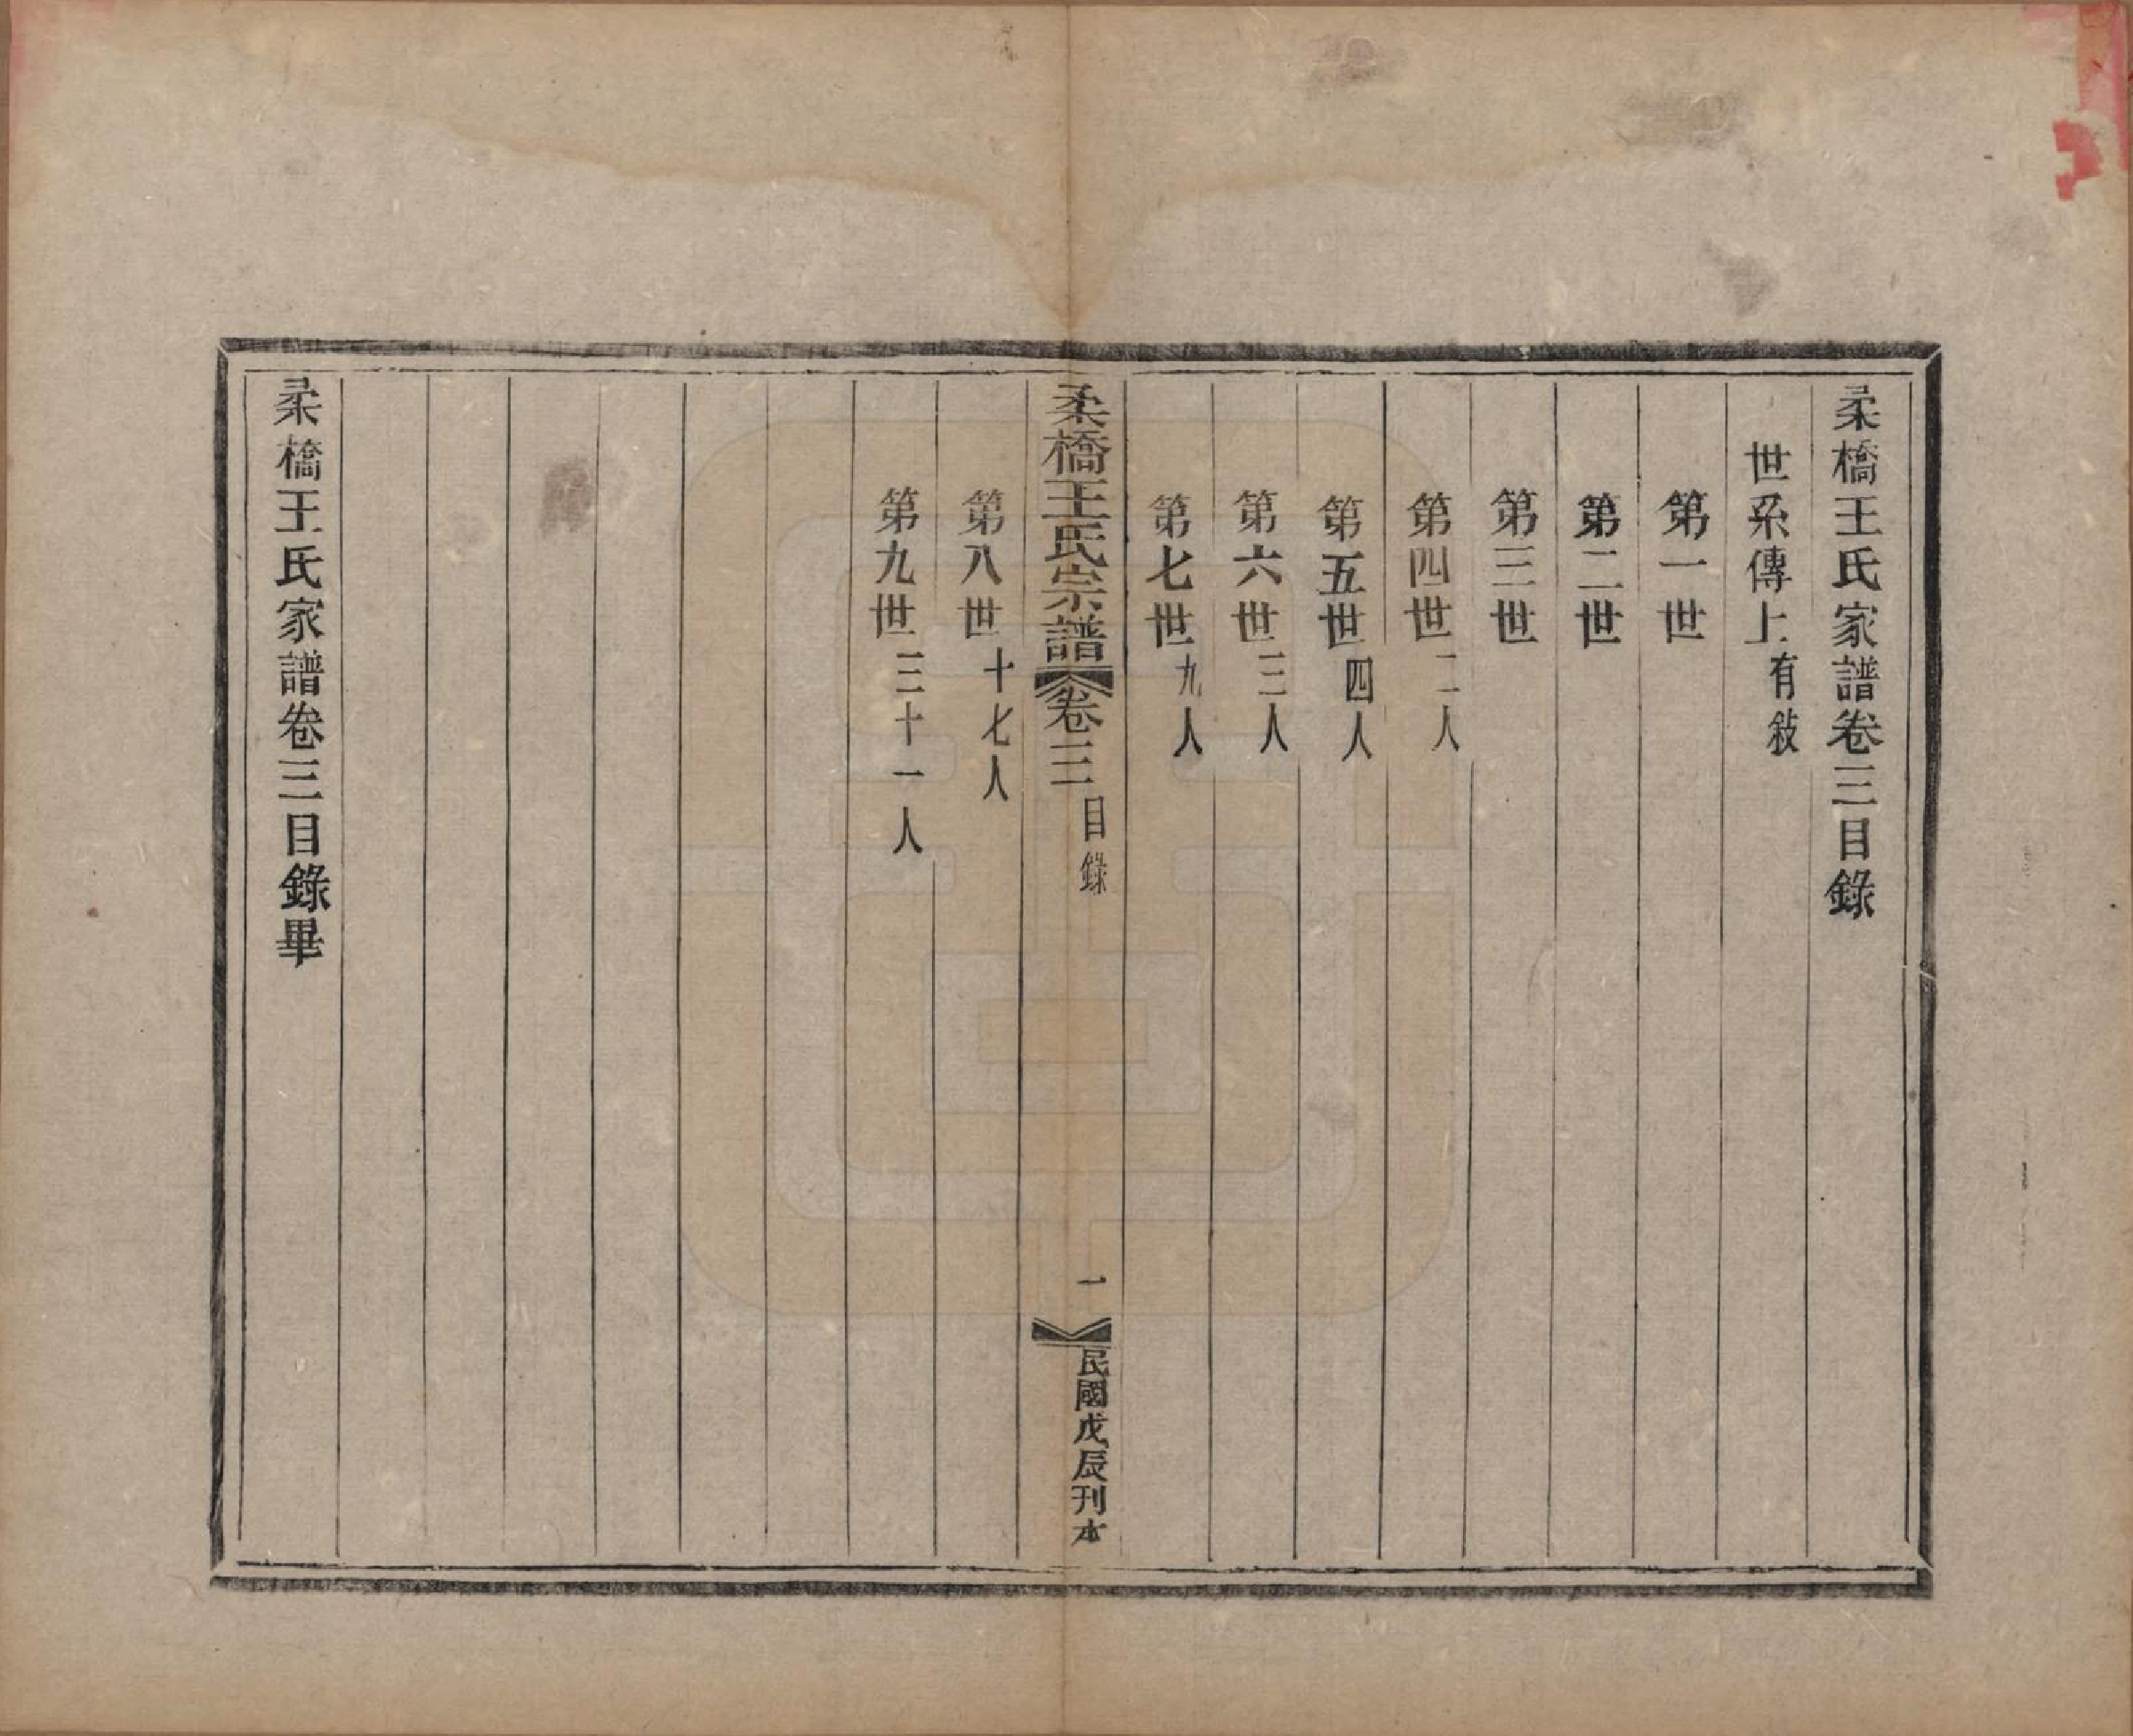 柔橋王氏家譜卷三目錄
世系傳上有敍
第一世
第二世
第三世
第四世二人
第五世四人
第六世三人
第七世九人
柔橋王氏宗譜卷三目錄 一 民國戊辰刊本
第八世十七人
第九世三十一人
柔橋王氏家譜卷三目錄畢